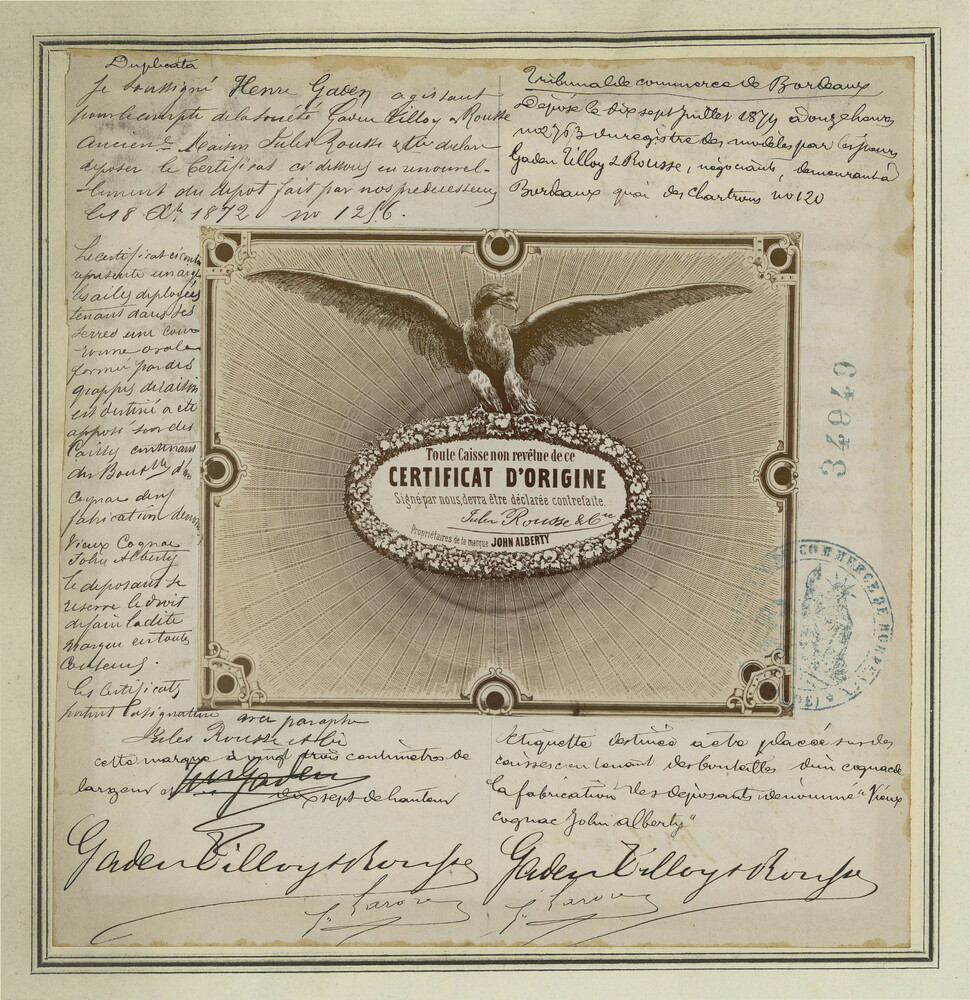 Duplicata
Je soussigné Henri Gaden agissant
pour le compte de la société Gaden Tilloy & Rousse
ancienne Maison Jules Rousse & Cie déclare
déposer le Certificat ci dessous en renouvel-
lement du dépot fait par nos prédécesseurs
le 18 Xbre 1872 no 1256.
Tribunal de commerce de Bordeaux
Déposé le dix sept Juillet 1879 à onze heures
no 2763 du registre des modèles par les sieurs
Gaden Tilloy & Rousse, négociants, demeurant à
Bordeaux quai des Chartrons no 120
Le certificat ci contre
représente un aigle
les ailes déployées
tenant dans ses
serres une cou-
ronne ovale
formée par des
grappes de raisin
est destiné a etre
apposé sur des
Caisses contenant
des Bouteilles de
Cognac de
fabrication
Vieux Cognac
John Alberty
Le déposant se
réserve le droit
de faire la dite
marque en toutes
Couleurs.
Les Certificats
portent la signature avec paraphe
Jules Rousse et Cie
cette marque a vingt trois centimètres de
largeur et dix sept de hauteur
Toute Caisse non revêtue de ce
CERTIFICAT D'ORIGINE
Signé par nous, devra être déclarée contrefaite.
Jules Rousse & Cie
Propriétaires de la marque JOHN ALBERTY
34949
COMMERCE DE BORDEAUX
Etiquette destinée a etre placée sur des
caisses contenant des bouteilles d'un cognac de
la fabrication des déposants dénommé "Vieux
cognac John Alberty"
Gaden Tilloy & Rousse
Gaden Tilloy & Rousse